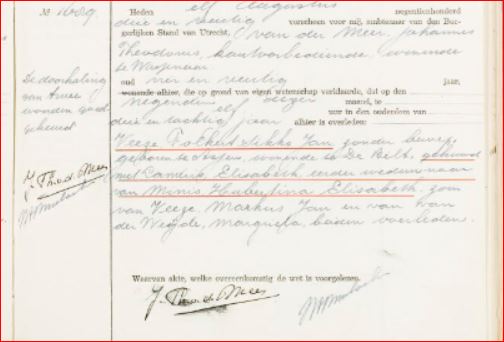 No. 1689
Heden elf Augustus negentienhonderd
drie en veertig verscheen voor mij, ambtenaar van den Bur-
gerlijken Stand van Utrecht, van der Meer, Johannes
Theodorus, kantoorbediende, wonende
te Wassenaar
oud vier en veertig jaar,
wonende alhier, die op grond van eigen wetenschap verklaarde, dat op den
negenden dezer maand, te
elf uur in den ouderdom van
drie en tachtig jaar alhier is overleden:
Veeze Folkert Mikko Jan zonder beroep,
geboren te wonende te De Bilt, gehuwd
met Elisabeth eerder weduwnaar
van Hubertina Elisabeth, zoon
van Veeze, Markus Jan en van van
der Weyde, Margareta, beiden overleden.
De doorhaling
van twee
woorden goed
gekeurd
J. Theo. d. Meer
Waarvan akte, welke overeenkomstig de wet is voorgelezen.
J. Theo. d. Meer